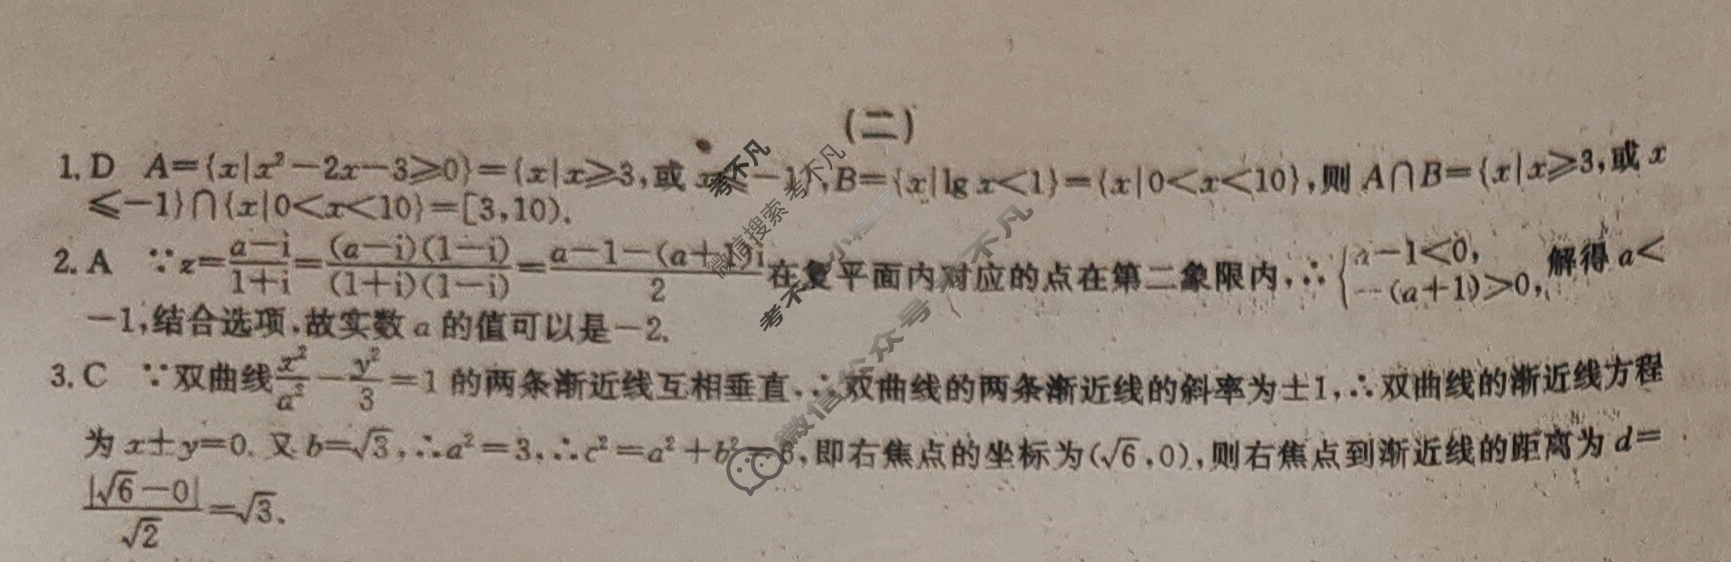 (二)
1. D A={x|x²-2x-3≥0}={x|x≥3,或 x≤-1},B={x|lg x<1}={x|0<x<10},则 A∩B={x|x≥3,或 x
≤-1}∩{x|0<x<10}=[3,10).
2. A ∵z=\frac{a-i}{1+i}=\frac{(a-i)(1-i)}{(1+i)(1-i)}=\frac{a-1-(a+1)i}{2}在复平面内对应的点在第二象限内,∴{a-1<0, -(a+1)>0, 解得 a<
-1,结合选项,故实数 a 的值可以是-2.
3. C ∵双曲线\frac{x²}{a²}-\frac{y²}{3}=1 的两条渐近线互相垂直,∴双曲线的两条渐近线的斜率为±1,∴双曲线的渐近线方程
为 x±y=0. 又 b=√3,∴a²=3,∴c²=a²+b²=6,即右焦点的坐标为(√6,0),则右焦点到渐近线的距离为 d=
\frac{|√6-0|}{√2}=√3.
考不凡
微信搜索 考不凡
小程序
考不凡
微信公众号
考不凡